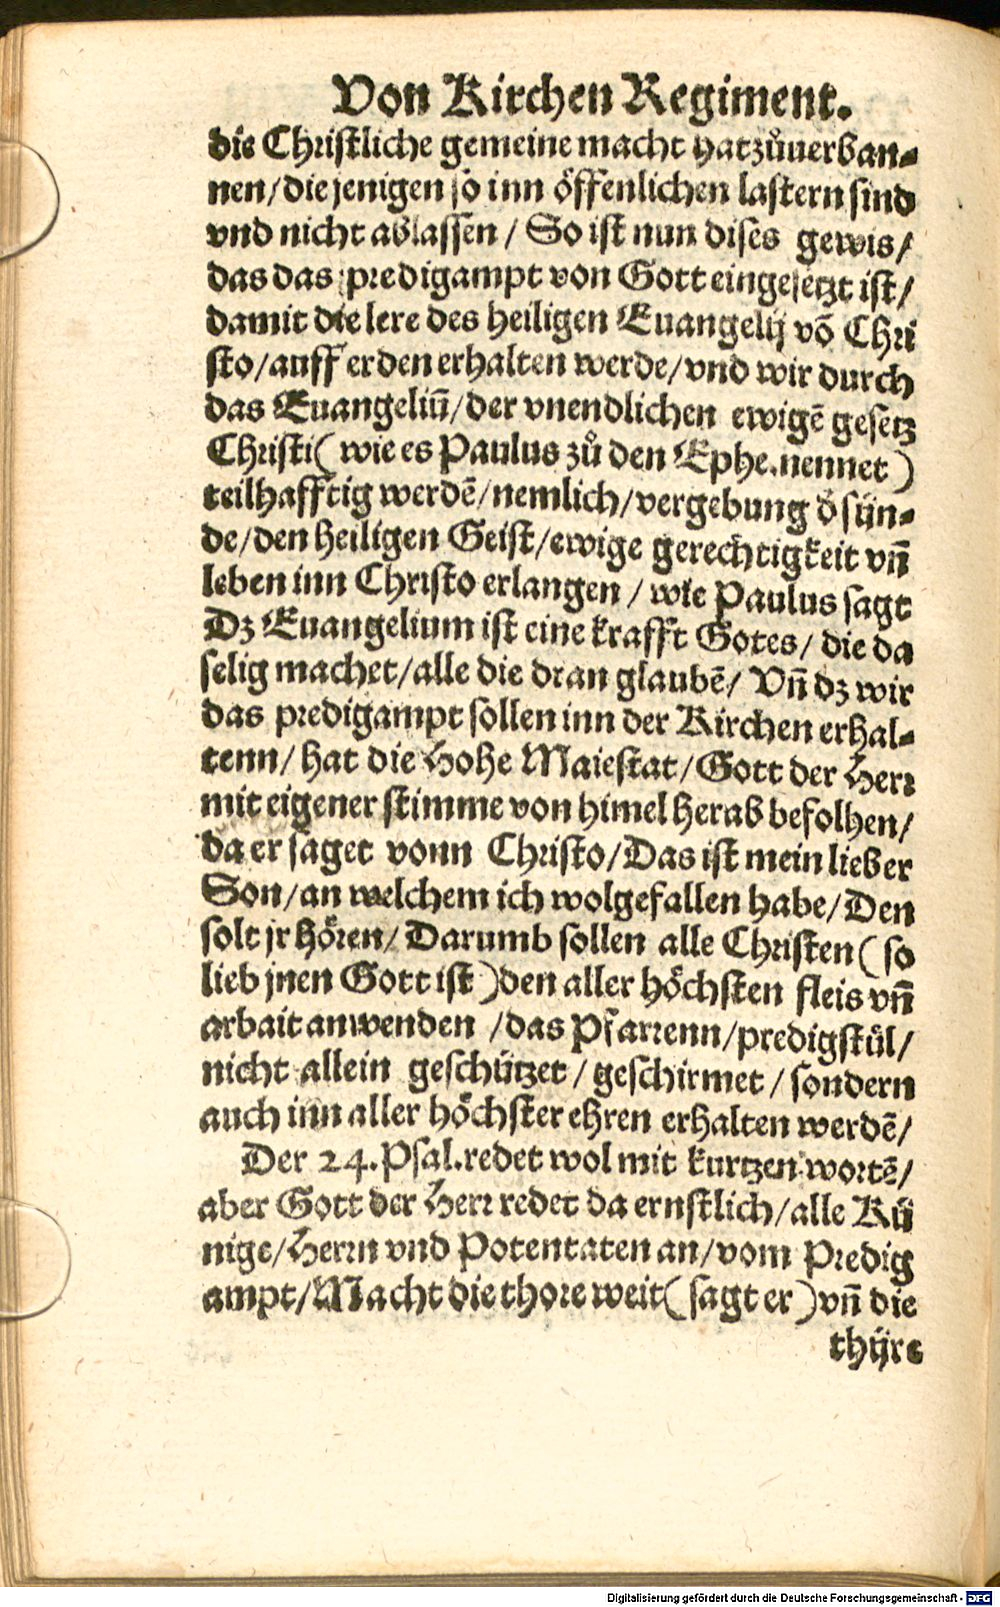 Von Kirchen Regiment.
die Christliche gemeine macht hat zůuerban⸗
nen/die jenigen so inn öffenlichen lastern sind
vnd nicht ablassen / So ist nun dises gewis/
das das predigampt von Gott eingesetzt ist/
damit die lere des heiligen Euangelij vō Chri
sto/auff erden erhalten werde/vnd wir durch
das Euangeliū/der vnendlichen ewigē gesetz
Christi( wie es Paulus zů den Ephe.nennet )
teilhafftig werdē/nemlich/vergebung d̄ sün⸗
de/den heiligen Geist/ewige gerechtigkeit vn̄
leben inn Christo erlangen / wie Paulus sagt
Dz Euangelium ist eine krafft Gotes/ die da
selig machet/alle die dran glaubē/ Vn̄ dz wir
das predigampt sollen inn der Kirchen erhal⸗
tenn/ hat die Hohe Maiestat/Gott der Herr
mit eigener stimme von himel herab befolhen/
da er saget vonn Christo/Das ist mein lieber
Son/an welchem ich wolgefallen habe/Den
solt jr hören/ Darumb sollen alle Christen ( so
lieb jnen Gott ist )den aller höchsten fleis vn̄
arbait anwenden /das Pfarrenn/predigstůl/
nicht allein geschützet / geschirmet / sondern
auch inn aller höchster ehren erhalten werdē/
Der 24.Psal.redet wol mit kurtzen wortē/
aber Gott der Herr redet da ernstlich/alle Kü
nige/Herrn vnd Potentaten an/vom Predig
ampt/Macht die thore weit( sagt er )vn̄ die
thüre
Digitalisierung gefördert durch die Deutsche Forschungsgemeinschaft - DFG